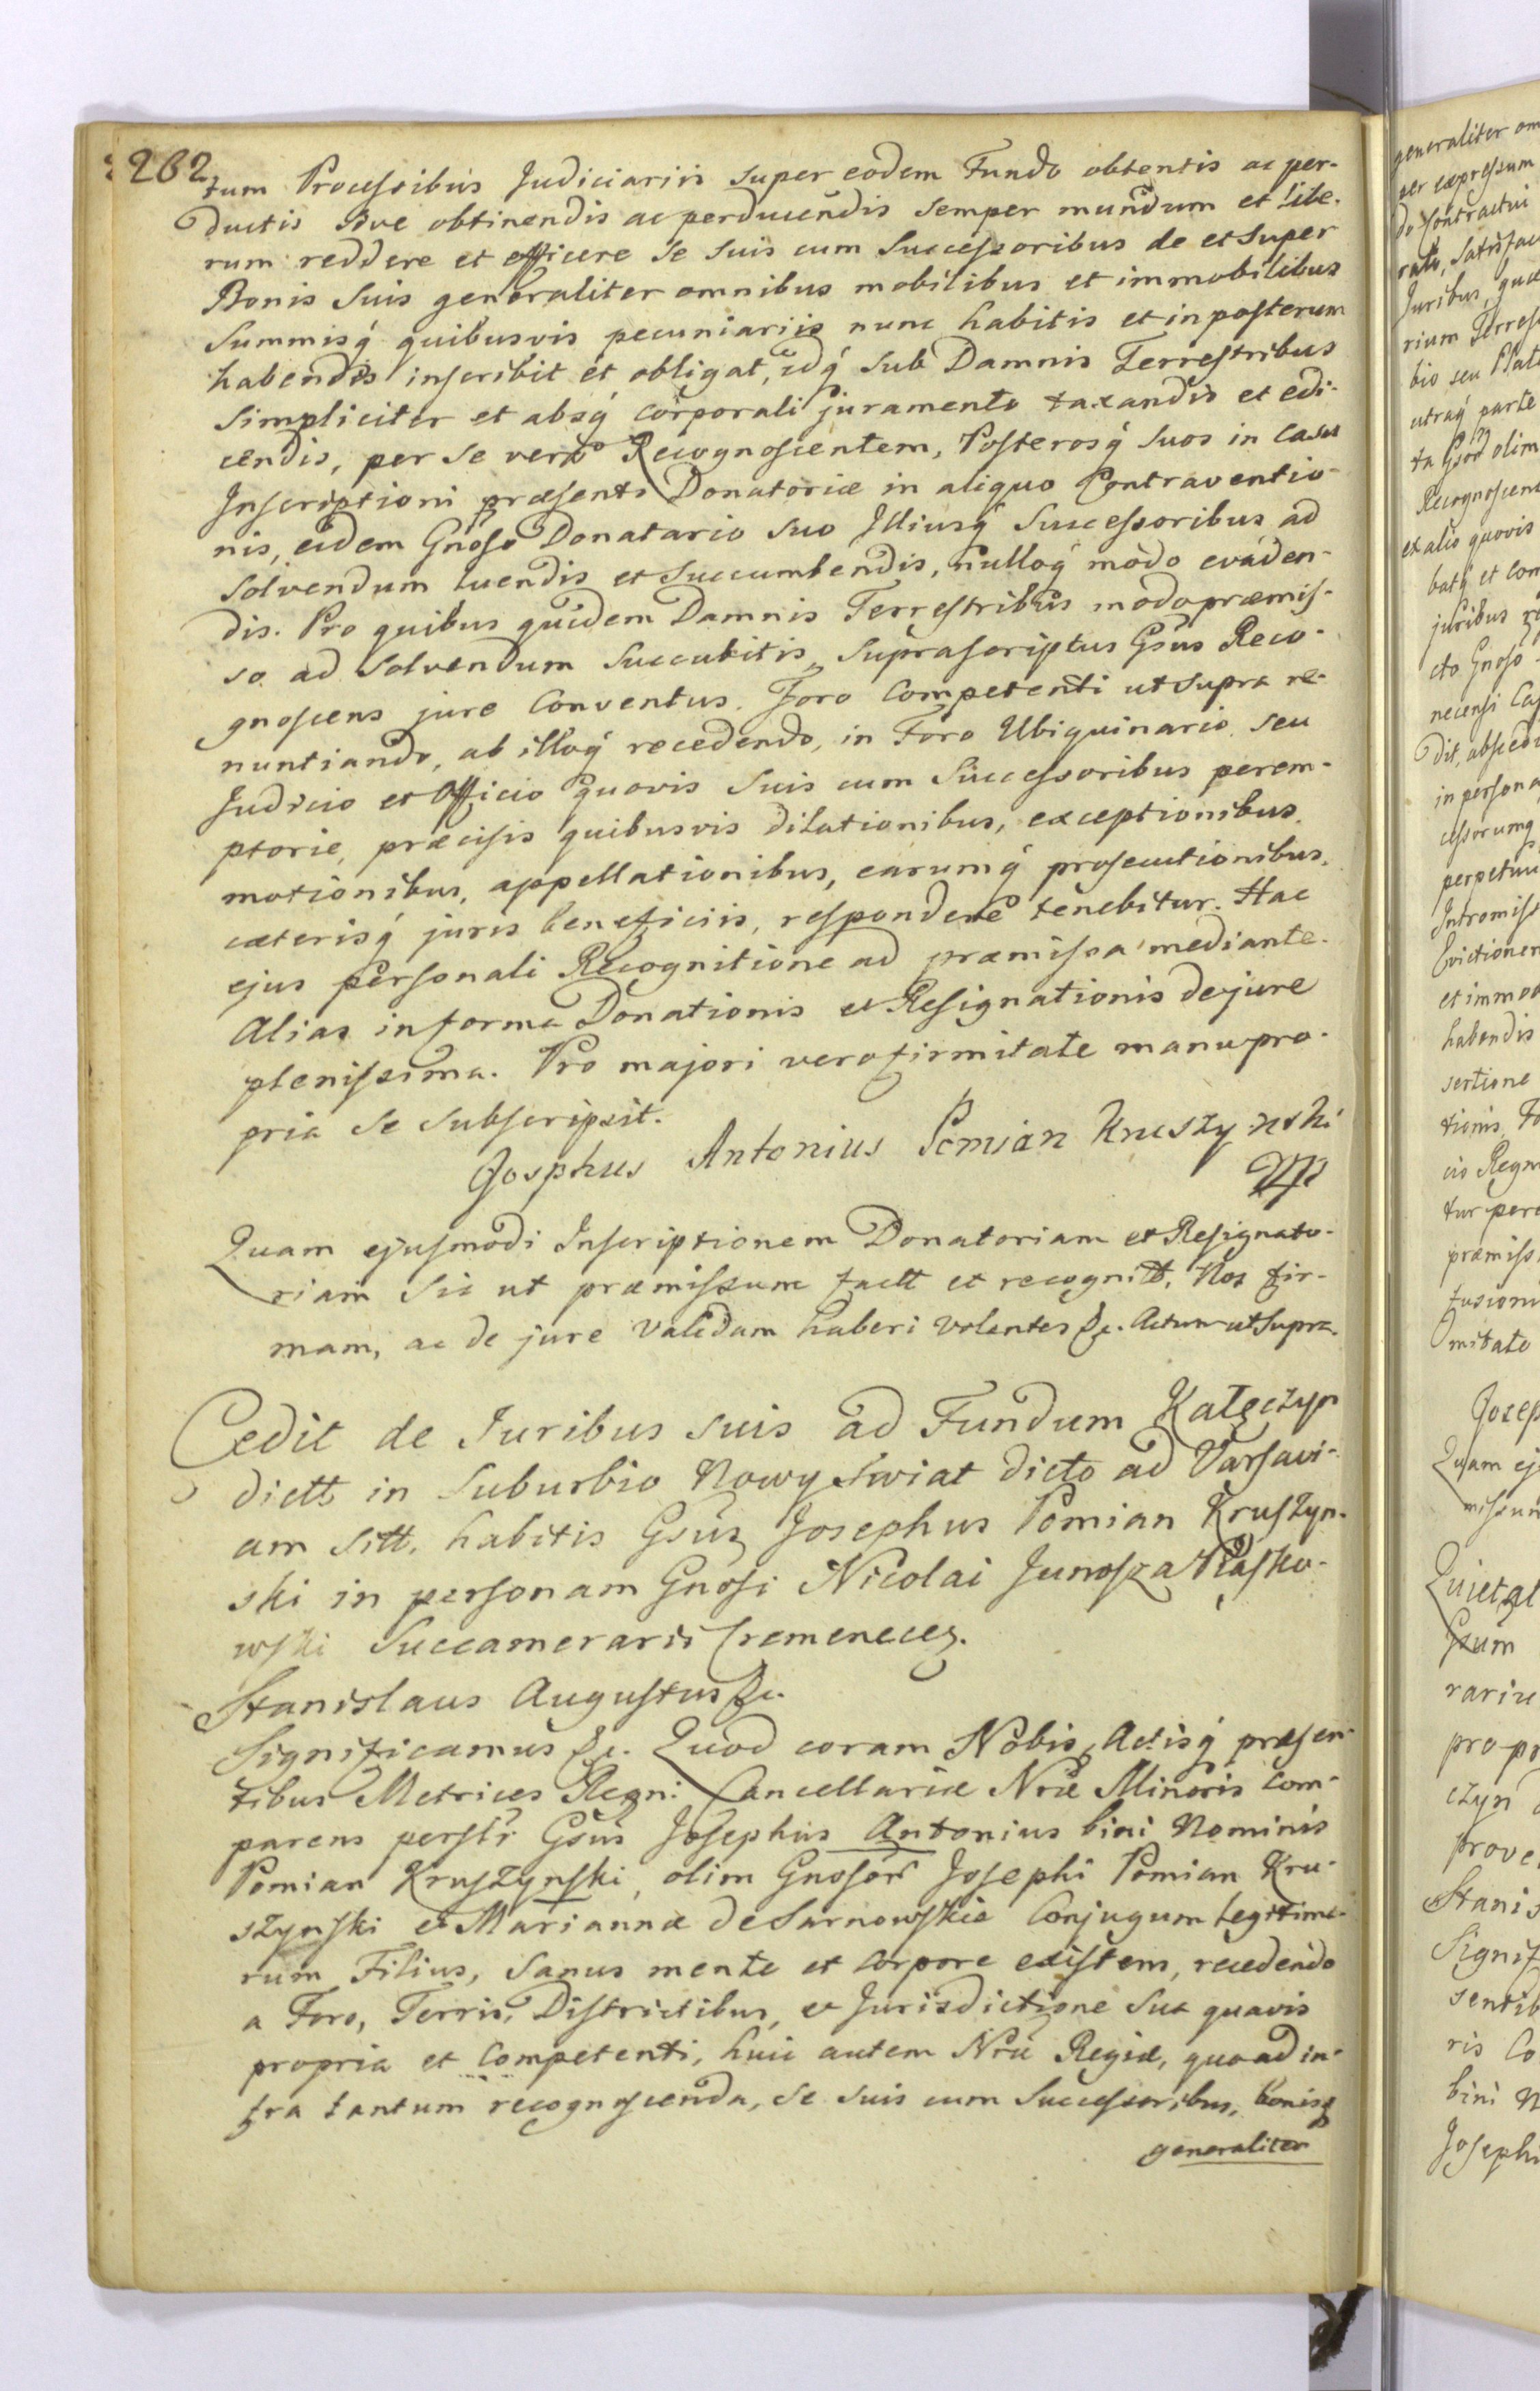 262
tum Processibus Judiciariis super eodem Fundo obtentis ac per-
ductis sive obtinendis ac perducendis semper mundum et libe-
rum reddere et efficere se suis cum Successoribus de et super
Bonis suis generaliter omnibus mobilibus et immobilibus
Summisq́ quibusvis pecuniariis nunc habitis et in posterum
habendis inscribit et obligat, idq́ sub Damnis Terrestribus
simpliciter et absq́ corporali juramento taxandis et edi-
cendis, per se vero Recognoscentem, Posterosq́ suos in casu
Inscriptioni præsenti Donatoriæ in aliquo Contraventio-
nis, eidem Gnoso Donatario suo Illiusq́ Successoribus ad
solvendum luendis et succumbendis, nulloq́ modo evaden-
dis. Pro quibus quidem Damnis Terrestribus modopræmis-
so ad solvendum succubitis, suprascriptus Gsus Reco-
gnoscens jure Conventus. Foro Competenti ut supra re-
nuntiando, ab illoq́ recedendo, in Foro Ubiquinario seu
Judicio et Officio quovis suis cum Successoribus perem-
ptorie, præcisis quibusvis dilationibus, exceptionibus
motionibus, appellationibus, earumq́ prosecutionibus,
cæterisq́ juris beneficiis, respondere tenebitur. Hac
ejus personali Recognitione ad præmissa mediante.
Alias in forma Donationis et Resignationis de jure
plenissima. Pro majori vero firmitate manu pro-
pria se subscripsit.
Josphus Antonius Pomian Kruszynski
Mp
Quam ejusmodi Inscriptionem Donatoriam et Resignato-
riam sic ut præmissum factt et recognitt, Nos fir-
mam, ac de jure validam haberi volentes &c. Actum ut supra.
Cedit de Juribus suis ad Fundum Kałęczyn
dictt in Suburbio Nowy Swiat dicto ad Varsavi-
am sitt. habitis Gsus Josephus Pomian Kruszyn-
ski in personam Gnosi Nicolai Junosza Piasko-
wski Succamerarii Cremenecen.
Stanislaus Augustus &c.
Significamus &c. Quod coram Nobis, Actisq́ præsen-
tibus Metrices Regni Cancellariæ Nræ Minoris com-
parens perslr Gsus Josephus Antonius bini Nominis
Pomian Kruszynski, olim Gnosor Josephi Pomian Kru-
szynski et Mariannæ de Sarnowskie Conjugum legitimo-
rum Filius, sanus mente et corpore existens, recedendo
a Foro, Terris, Districtibus, et Jurisdictione sua quavis
propria et Competenti, huic autem Nræ Regiæ, quo ad in-
fra tantum recognoscenda, se suis cum Successoribus, bonisq́
generaliter
generaliter om
per expressum
do Contractui
rato, satisfac
Juribus, quæ
rium Terrest
bio seu Plat
utraq́ parte
ta Gsor olim
Recognoscent
ex alio quovis
batq́ et con
juribus
cto Gnoso
necensi
dit, absced
in persona
cessorumq́
perpetuu
Intromiss
Evictionem
et immob
habendis
sertione
tionis, Fo
cio Regn
tur pere
præmiss
fusioni
mitate
Josep
Quam ej
missum
Quietat
Gsum
rariu
pro po
czyn
prove
Stanis
Signif
sentib
ris Co
bini N
Josephi